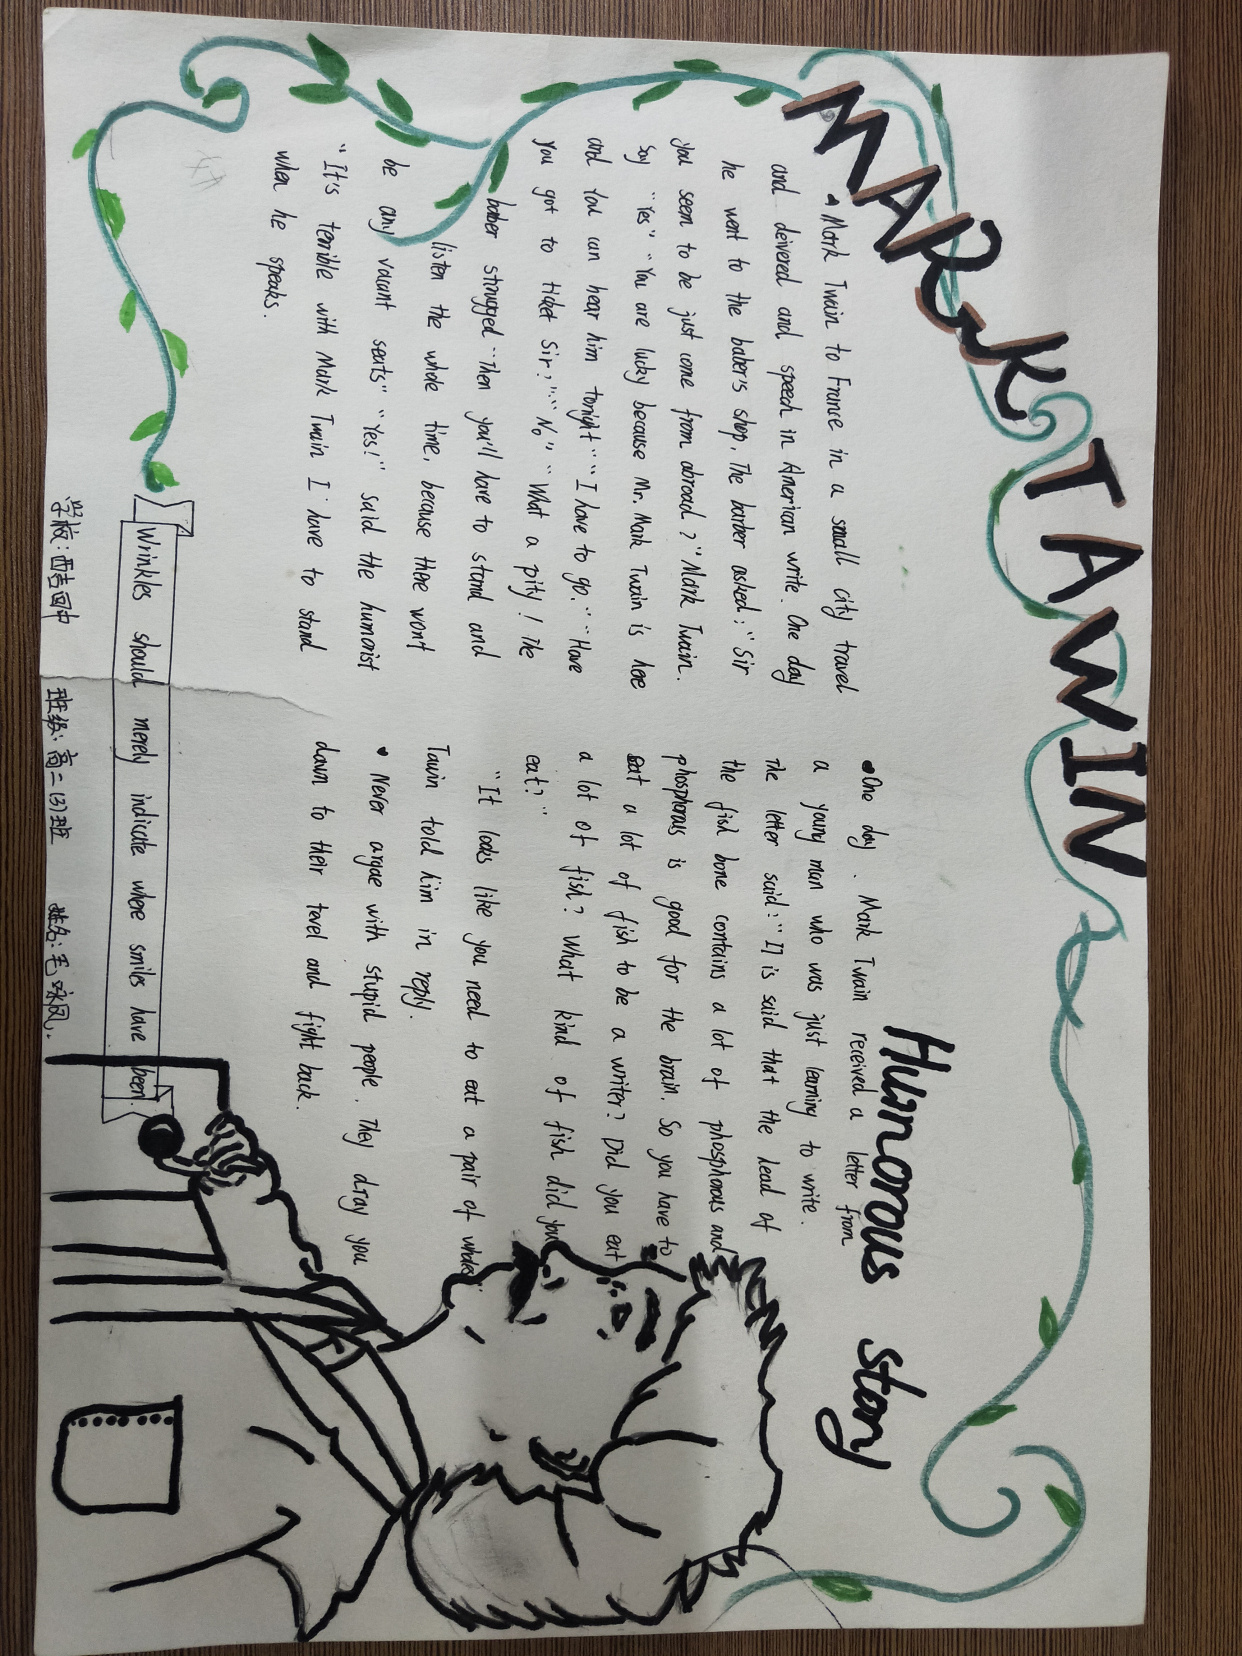 MARK TAWIN
Humorous story
• Mark Twain to France in a small city travel
and deivered and speech in American write. One day
he went to the baber's shop. The barber asked: "Sir
you seem to be just come from abroad?" Mark Twain.
Say "Yes" "You are lucky because Mr. Mark Twain is here
and you can hear him tonight" "I have to go." "Have
you got to ticket Sir?" "No" "What a pity! The
barber struggged "Then you'll have to stand and
listen the whole time, because there won't
be any vacant seats" "Yes!" said the humorist
"It's terrible with Mark Twain I have to stand
when he speaks.
• One day. Mark Twain received a letter from
a young man who was just learning to write.
The letter said: "IT is said that the head of
the fish bone contains a lot of phosphorous and
phosphorous is good for the brain. So you have to
eat a lot of fish to be a writer? Did you eat
a lot of fish? What kind of fish did you
eat?"
"It looks like you need to eat a pair of whales"
Tawin told him in reply.
• Never argae with stupid people. They dray you
down to their tevel and fight back.
Wrinkles should merely indicate where smiles have been.
学校:西吉回中 班级:高二(3)班 姓名:毛咏凤.